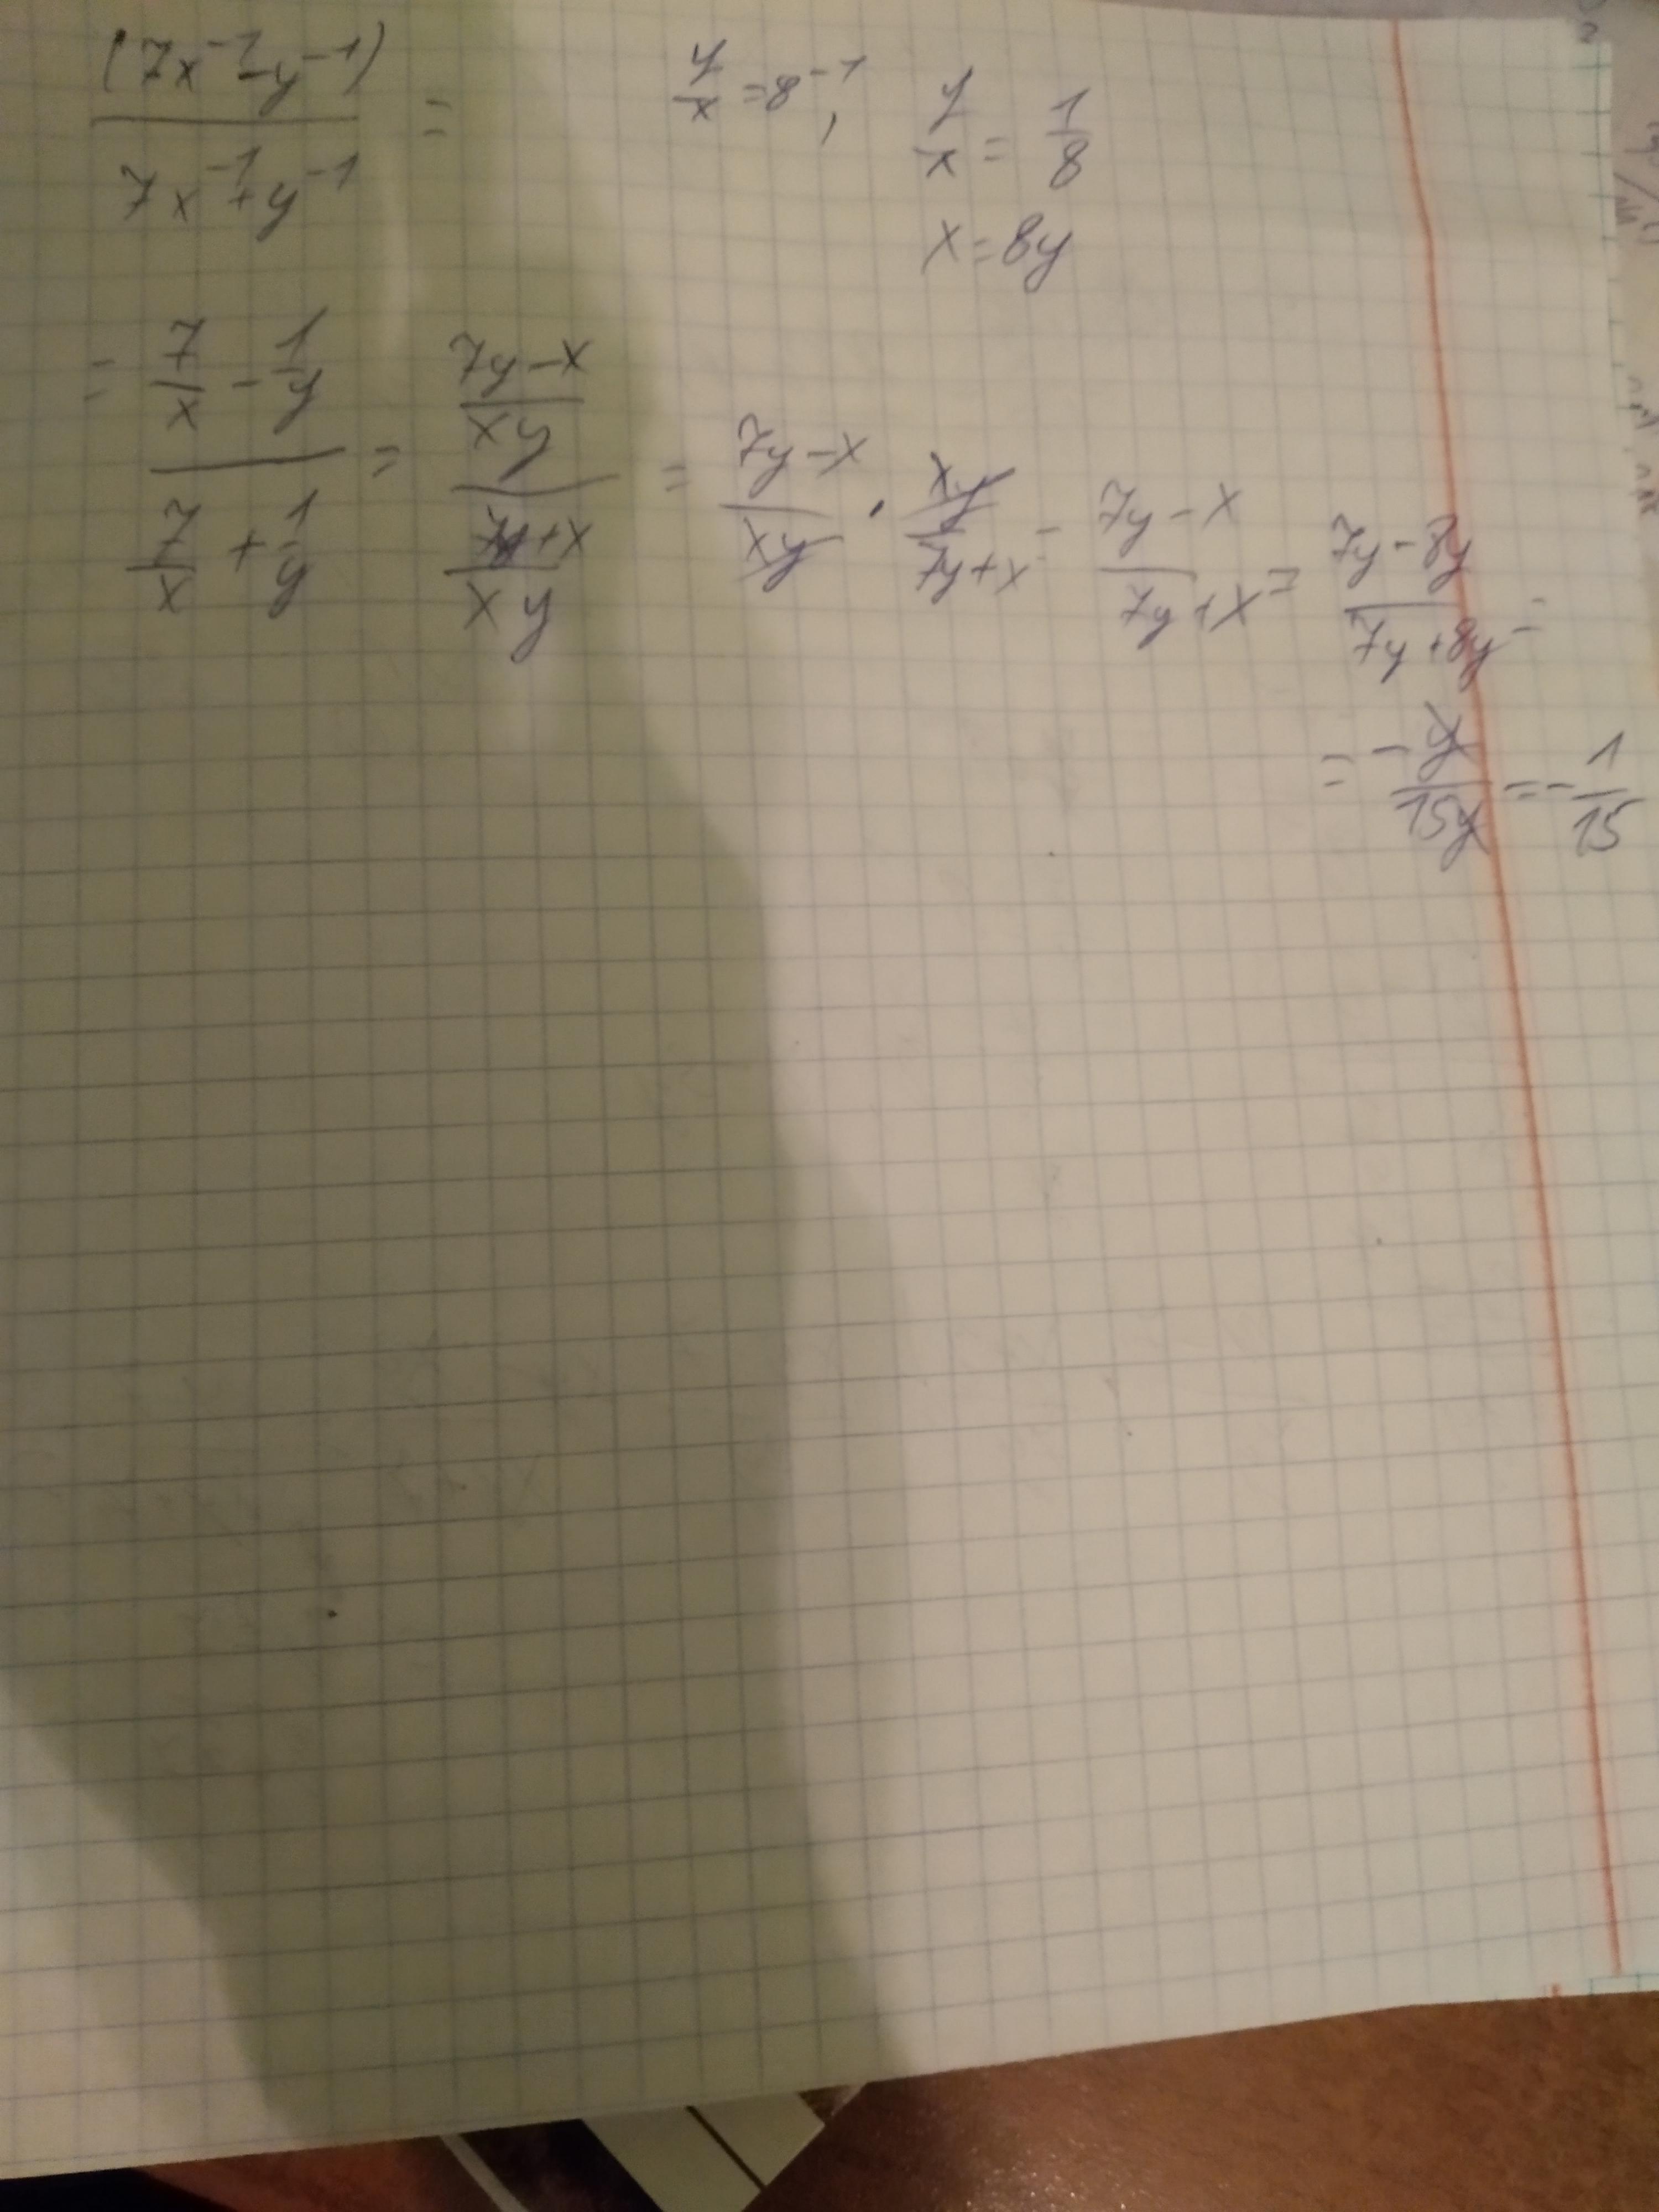 (7x⁻¹-y⁻¹)/(7x⁻¹+y⁻¹) =
y/x = 8⁻¹, y/x = 1/8
x = 8y
= (7/x - 1/y)/(7/x + 1/y) = ((7y-x)/(xy))/((7y+x)/(xy)) = (7y-x)/(xy) · (xy)/(7y+x) = (7y-x)/(7y+x) = (7y-8y)/(7y+8y) =
= -y/(15y) = -1/15